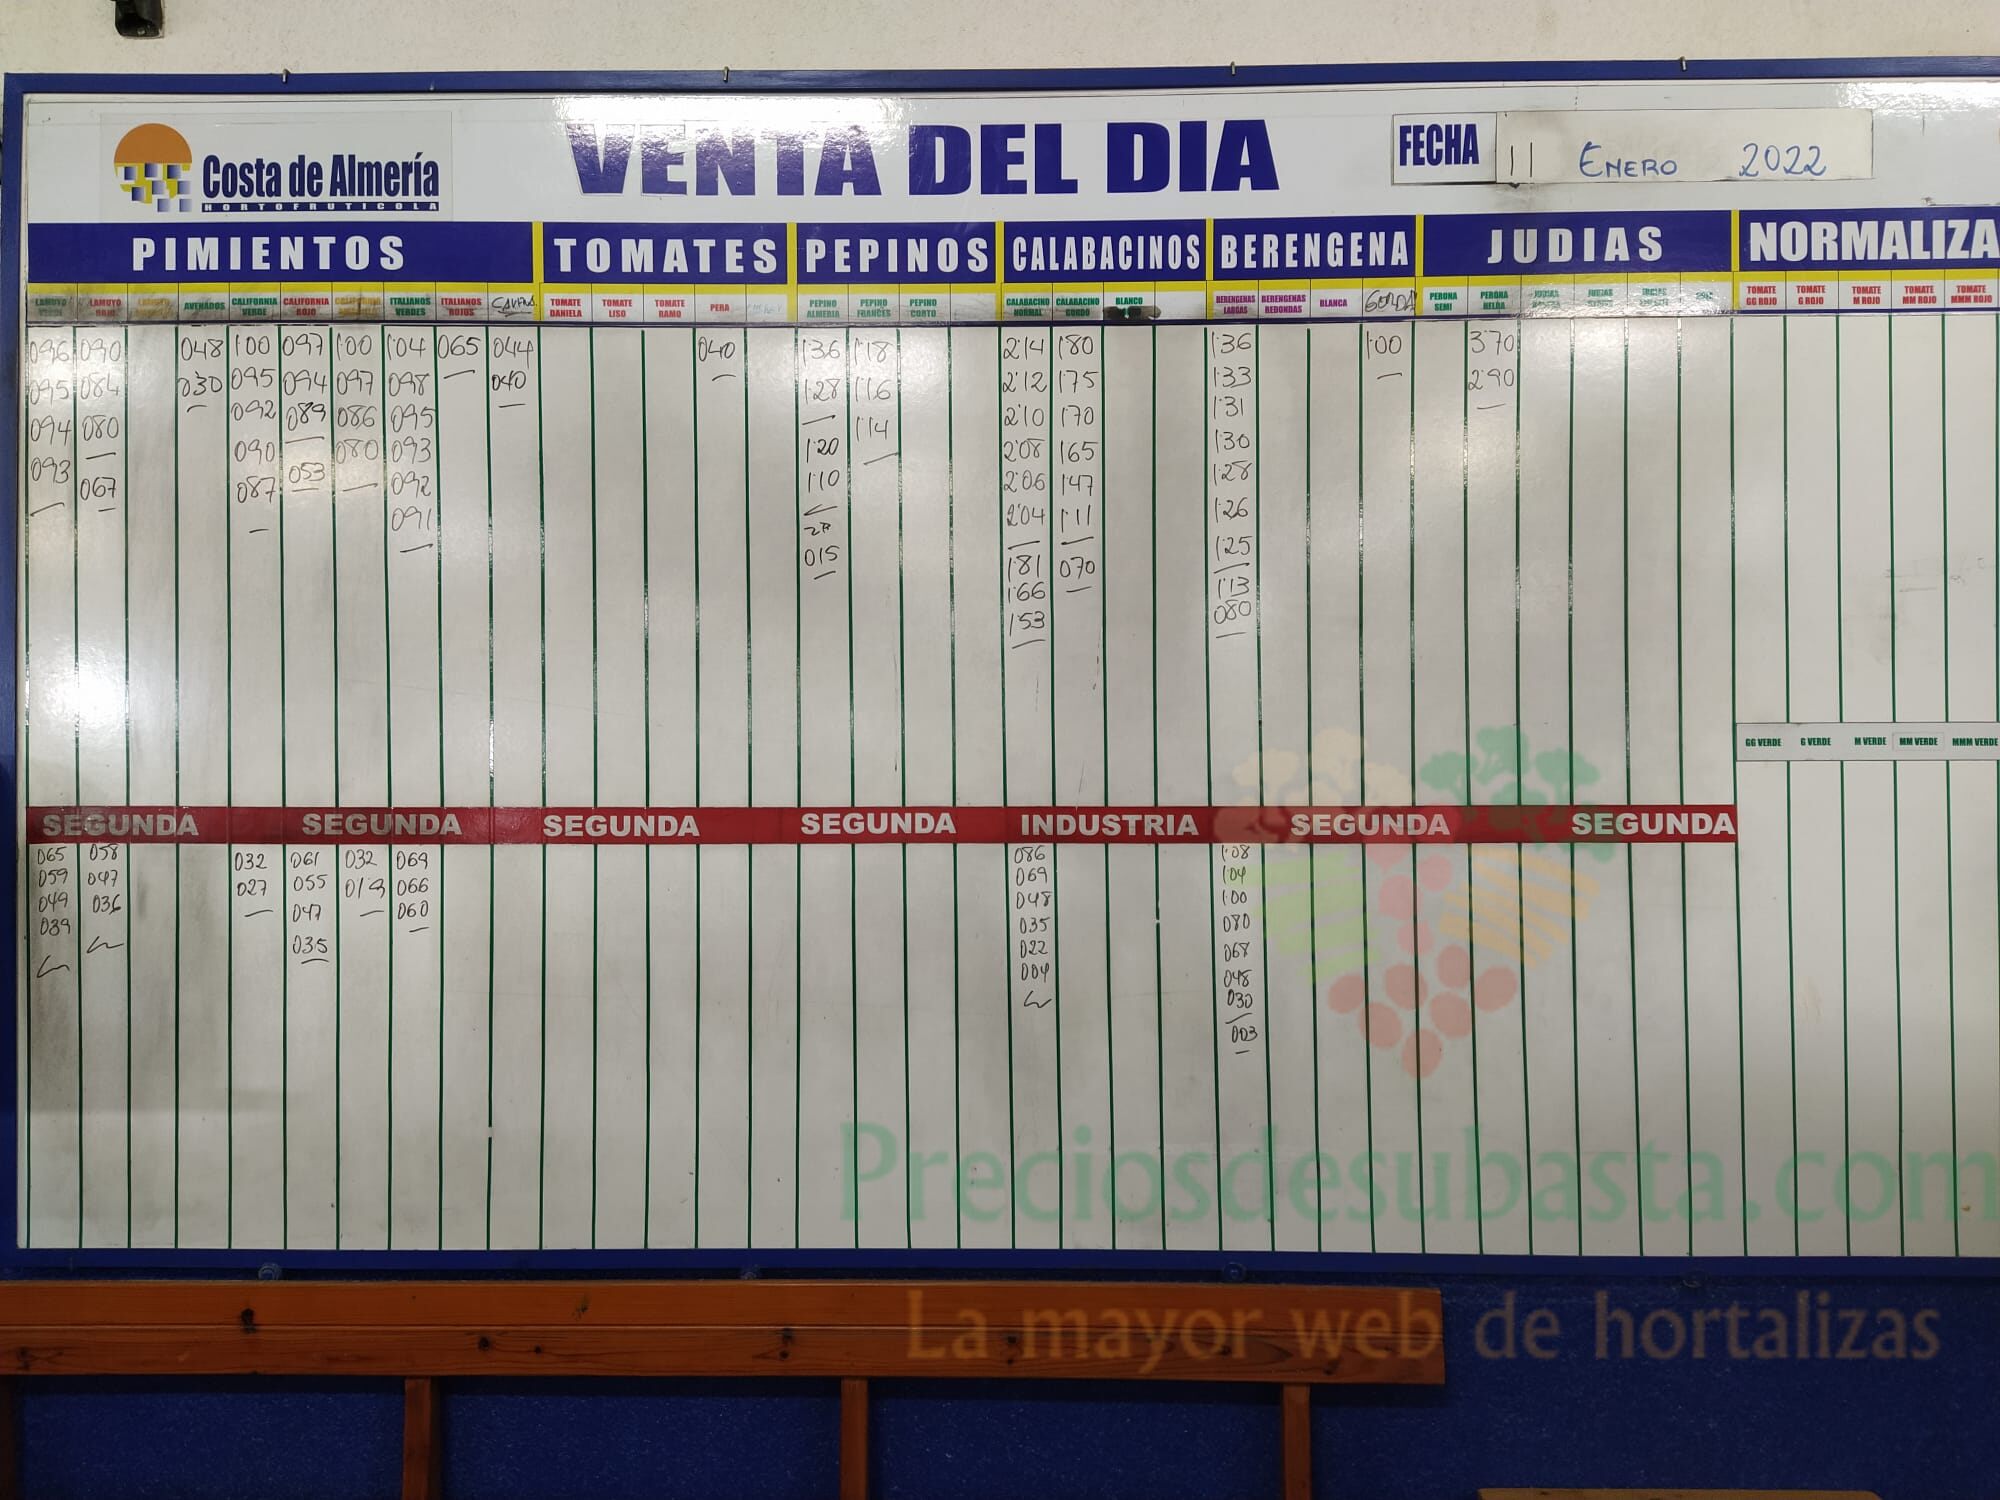 Costa de Almería
HORTOFRUTICOLA
VENTA DEL DIA
FECHA
11 ENERO 2022
PIMIENTOS TOMATES PEPINOS CALABACINOS BERENGENA JUDIAS NORMALIZA
LAMUYO VERDE
LAMUYO ROJO
AVENADOS
CALIFORNIA VERDE
CALIFORNIA ROJO
CALIFORNIA
ITALIANOS VERDES
ITALIANOS ROJOS
TOMATE DANIELA
TOMATE LISO
TOMATE RAMO
PERA
PEPINO ALMERIA
PEPINO FRANCES
PEPINO CORTO
CALABACINO NORMAL
CALABACINO GORDO
BLANCO
BERENGENAS LARGAS
BERENGENAS REDONDAS
BLANCA
GORDA
PERONA SEMI
PERONA HELDA
TOMATE GG ROJO
TOMATE G ROJO
TOMATE M ROJO
TOMATE MM ROJO
TOMATE MMM ROJO
096 090 048 1'00 097 1'00 1'04 065 044 040 1'36 1'18 2'14 1'80 1'36 1'00 3'70
095 084 030 095 094 097 098 040 1'28 1'16 2'12 1'75 1'33 2'90
094 080 092 089 086 095 1'20 1'14 2'10 1'70 1'31
093 067 090 053 080 093 1'10 2'08 1'65 1'30
087 092 2ª 2'06 1'47 1'28
091 015 2'04 1'11 1'26
1'81 070 1'25
1'66 1'13
1'53 080
GG VERDE G VERDE M VERDE MM VERDE MMM VERDE
SEGUNDA SEGUNDA SEGUNDA SEGUNDA INDUSTRIA SEGUNDA SEGUNDA
065 058 032 061 032 069 086 1'08
059 047 027 055 019 066 069 1'04
049 036 047 060 048 1'00
039 035 035 080
022 068
004 048
030
003
Preciosdesubasta.com
La mayor web de hortalizas